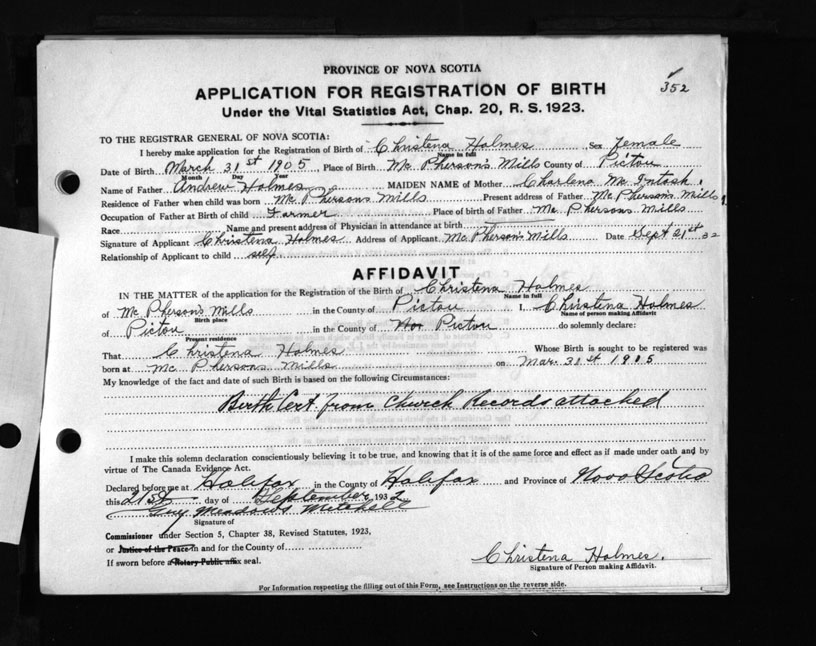 PROVINCE OF NOVA SCOTIA
352
APPLICATION FOR REGISTRATION OF BIRTH
Under the Vital Statistics Act, Chap. 20, R. S. 1923.
TO THE REGISTRAR GENERAL OF NOVA SCOTIA:
I hereby make application for the Registration of Birth of Christena Holmes Sex female
Name in full
Date of Birth March 31st 1905, Place of Birth Mc Pherson's Mills County of Pictou
Month Day Year
Name of Father Andrew Holmes MAIDEN NAME of Mother Charlena Mc Intosh.
Residence of Father when child was born Mc Phersons Mills Present address of Father Mc Phersons Mills
Occupation of Father at Birth of child Farmer Place of birth of Father Mc Phersons Mills
Race Name and present address of Physician in attendance at birth
Signature of Applicant Christena Holmes Address of Applicant Mc Pherson's Mills Date Sept 21st 32
Relationship of Applicant to child self
AFFIDAVIT
IN THE MATTER of the application for the Registration of the Birth of Christena Holmes
Name in full
of Mc Pherson's Mills in the County of Pictou I, Christena Holmes
Birth place Name of person making Affidavit
of Pictou in the County of Pictou do solemnly declare:
Present residence
That Christena Holmes Whose Birth is sought to be registered was
born at Mc Phersons Mills on Mar. 31st 1905
My knowledge of the fact and date of such Birth is based on the following Circumstances:
Birth Cert. from Church Records attached
I make this solemn declaration conscientiously believing it to be true, and knowing that it is of the same force and effect as if made under oath and by
virtue of The Canada Evidence Act.
Declared before me at Halifax in the County of Halifax and Province of Nova Scotia
this 21st day of September 1932
Guy Meadows Mitchell
Signature of
Commissioner under Section 5, Chapter 38, Revised Statutes, 1923,
or Justice of the Peace in and for the County of
If sworn before a Notary Public affix seal.
Christena Holmes.
Signature of Person making Affidavit.
For Information respecting the filling out of this Form, see Instructions on the reverse side.